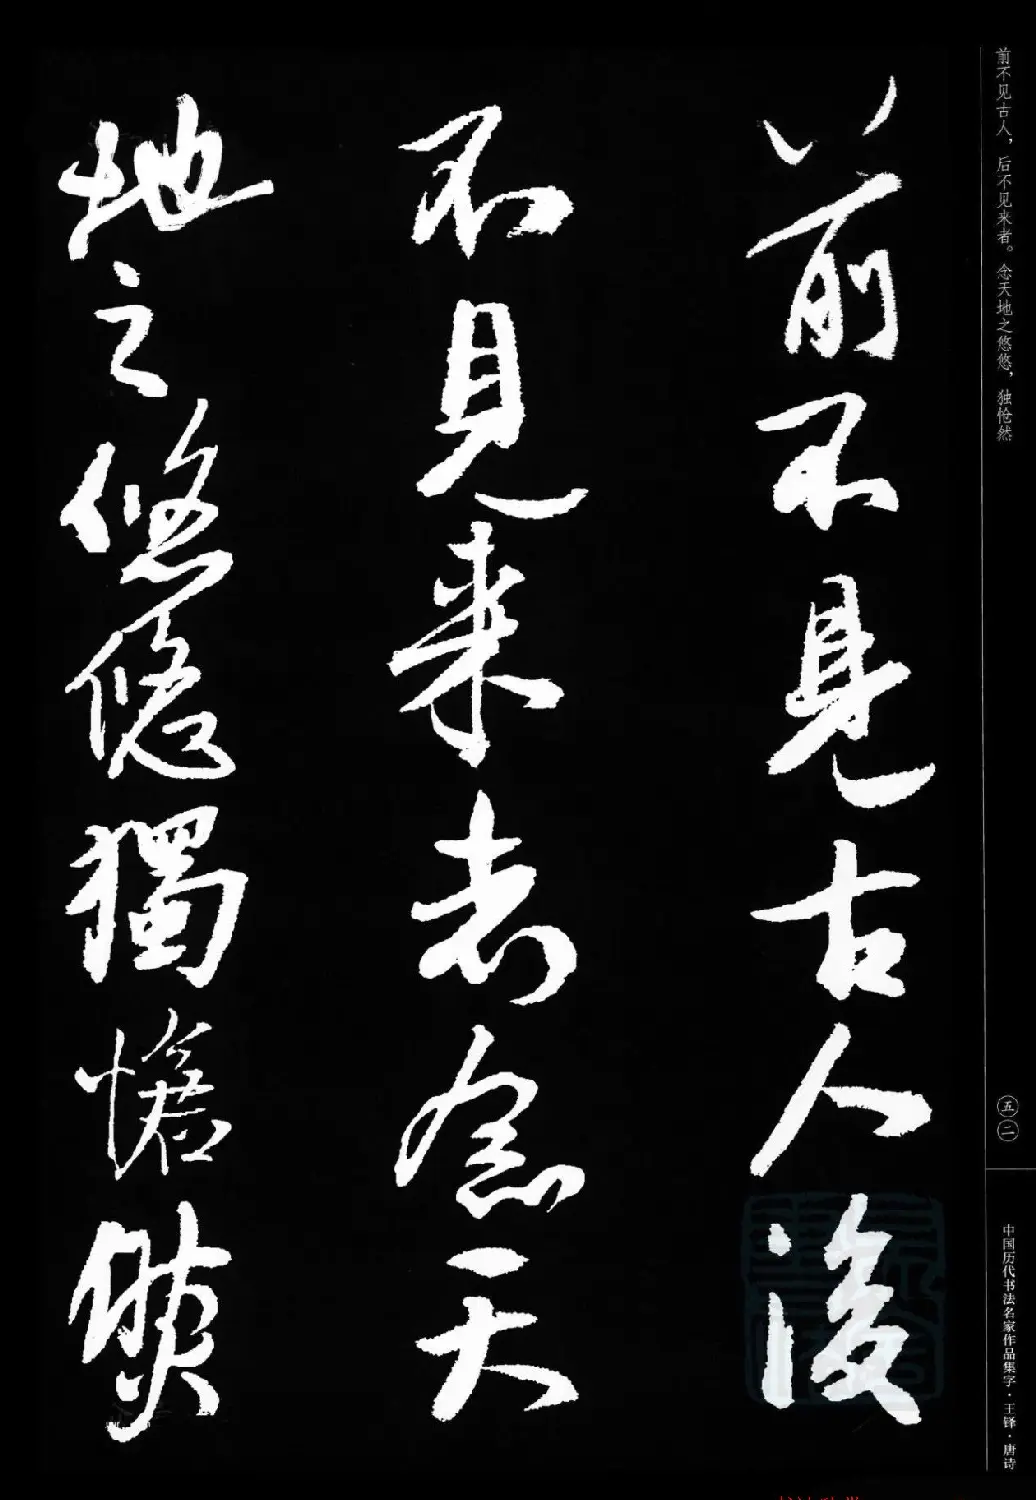 前不见古人，后不见来者。念天地之悠悠，独怆然
前不見古人後
不見来者念天
地之悠悠獨愴然
五二
中国历代书法名家作品集字·王铎·唐诗